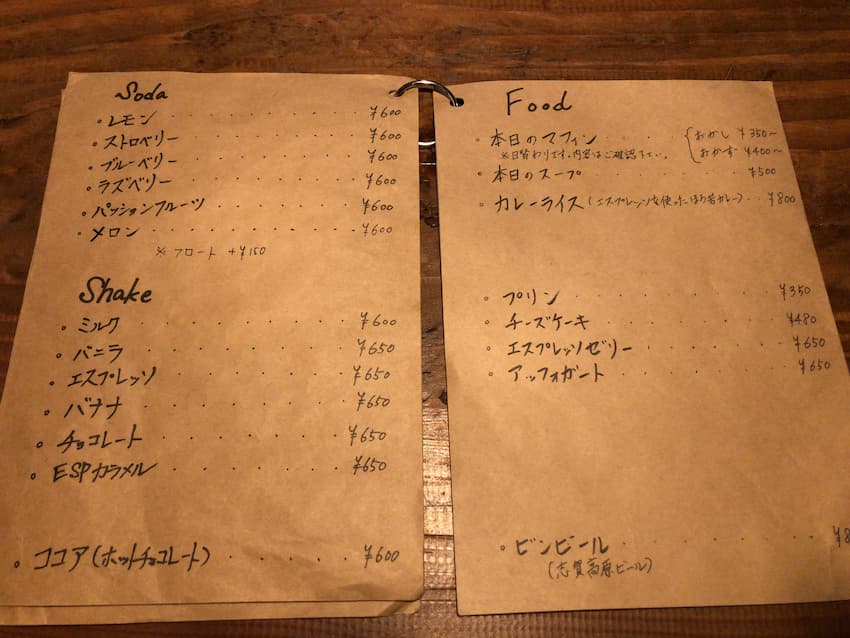 Soda
・レモン ・・・・・・・・・ ¥600
・ストロベリー ・・・・・・・・ ¥600
・ブルーベリー ・・・・・・・・ ¥600
・ラズベリー ・・・・・・・・ ¥600
・パッションフルーツ ・・・・・・・ ¥600
・メロン ・・・・・・・・・ ¥600
※フロート +¥150
Shake
・ミルク ・・・・・・・・・ ¥600
・バニラ ・・・・・・・・・ ¥650
・エスプレッソ ・・・・・・・・ ¥650
・バナナ ・・・・・・・・・ ¥650
・チョコレート ・・・・・・・・ ¥650
・ESPカラメル ・・・・・・・ ¥650
・ココア(ホットチョコレート) ・・・・・ ¥600
Food
・本日のマフィン ・・・・ { おかし ¥350~
※日替わりです。内容はご確認下さい。 おかず ¥400~
・本日のスープ ・・・・・・・ ¥500
・カレーライス(エスプレッソを使ったほろ苦カレー)・・ ¥800
・プリン ・・・・・・・・・ ¥350
・チーズケーキ ・・・・・・・・ ¥480
・エスプレッソゼリー ・・・・・・ ¥650
・アッフォガート ・・・・・・・ ¥650
・ビンビール ・・・・・・・・ ¥8
(志賀高原ビール)